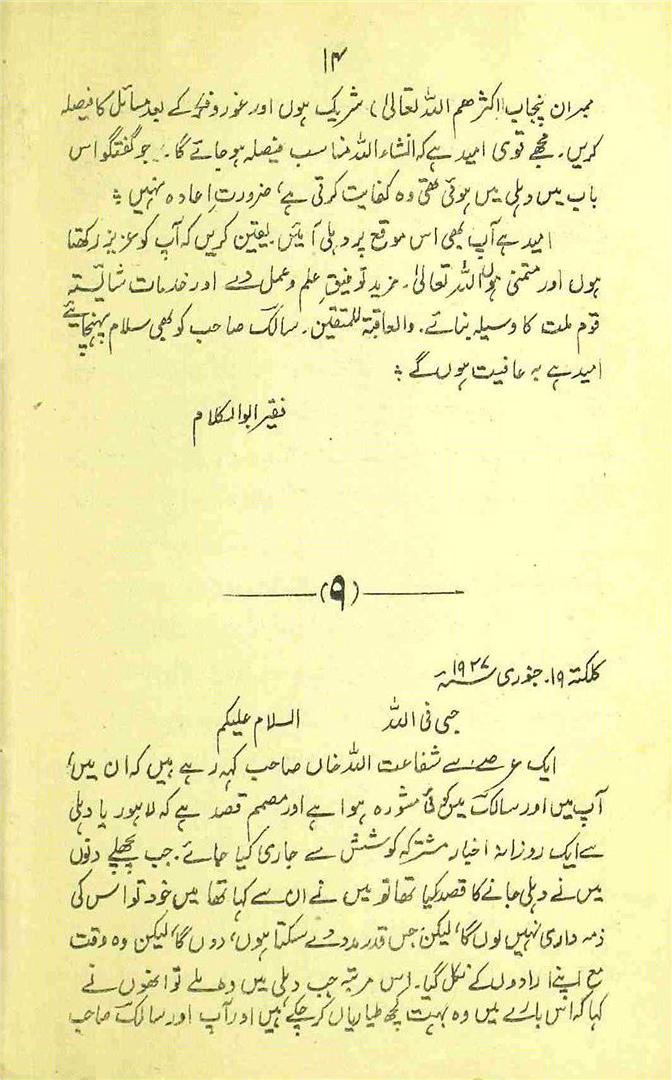 ۱۴
ممبران پنجاب (اکثرھم اللہ تعالیٰ) شریک ہوں اور غور و فکر کے بعد مسائل کا فیصلہ
کریں۔ مجھے قوی امید ہے کہ انشاء اللہ مناسب فیصلہ ہو جائے گا۔ جو گفتگو اس
باب میں دہلی میں ہوئی تھی وہ کفایت کرتی ہے، ضرورت اعادہ نہیں ؛
امید ہے آپ بھی اس موقع پر دہلی آئیں۔ یقین کریں کہ آپ کو عزیز رکھتا
ہوں اور متمنی ہوں اللہ تعالیٰ۔ مزید توفیق علم و عمل دے اور خدمات شائستہ
قوم ملت کا وسیلہ بنائے۔ والعاقبۃ للمتقین۔ سالک صاحب کو بھی سلام پہنچائیے
امید ہے بہ عافیت ہوں گے ؛
فقیر ابوالکلام
(۹)
کلکتہ ۱۹۔ جنوری ۱۹۲۷ء
حبی فی اللہ السلام علیکم
ایک عرصے سے شفاعت اللہ خاں صاحب کہہ رہے ہیں کہ ان میں،
آپ میں اور سالک میں کوئی مشورہ ہوا ہے اور مصمم قصد ہے کہ لاہور یا دہلی
سے ایک روزانہ اخبار مشترکہ کوشش سے جاری کیا جائے۔ جب پچھلے دنوں
میں نے دہلی جانے کا قصد کیا تھا تو میں نے ان سے کہا تھا میں خود تو اس کی
ذمہ داری نہیں لوں گا، لیکن جس قدر مدد دے سکتا ہوں، دوں گا، لیکن وہ وقت
مع اپنے ارادوں کے نکل گیا۔ اس مرتبہ جب دہلی میں وہ ملے تو انھوں نے
کہا کہ اس بارے میں وہ بہت کچھ طیاریاں کر چکے ہیں اور آپ اور سالک صاحب